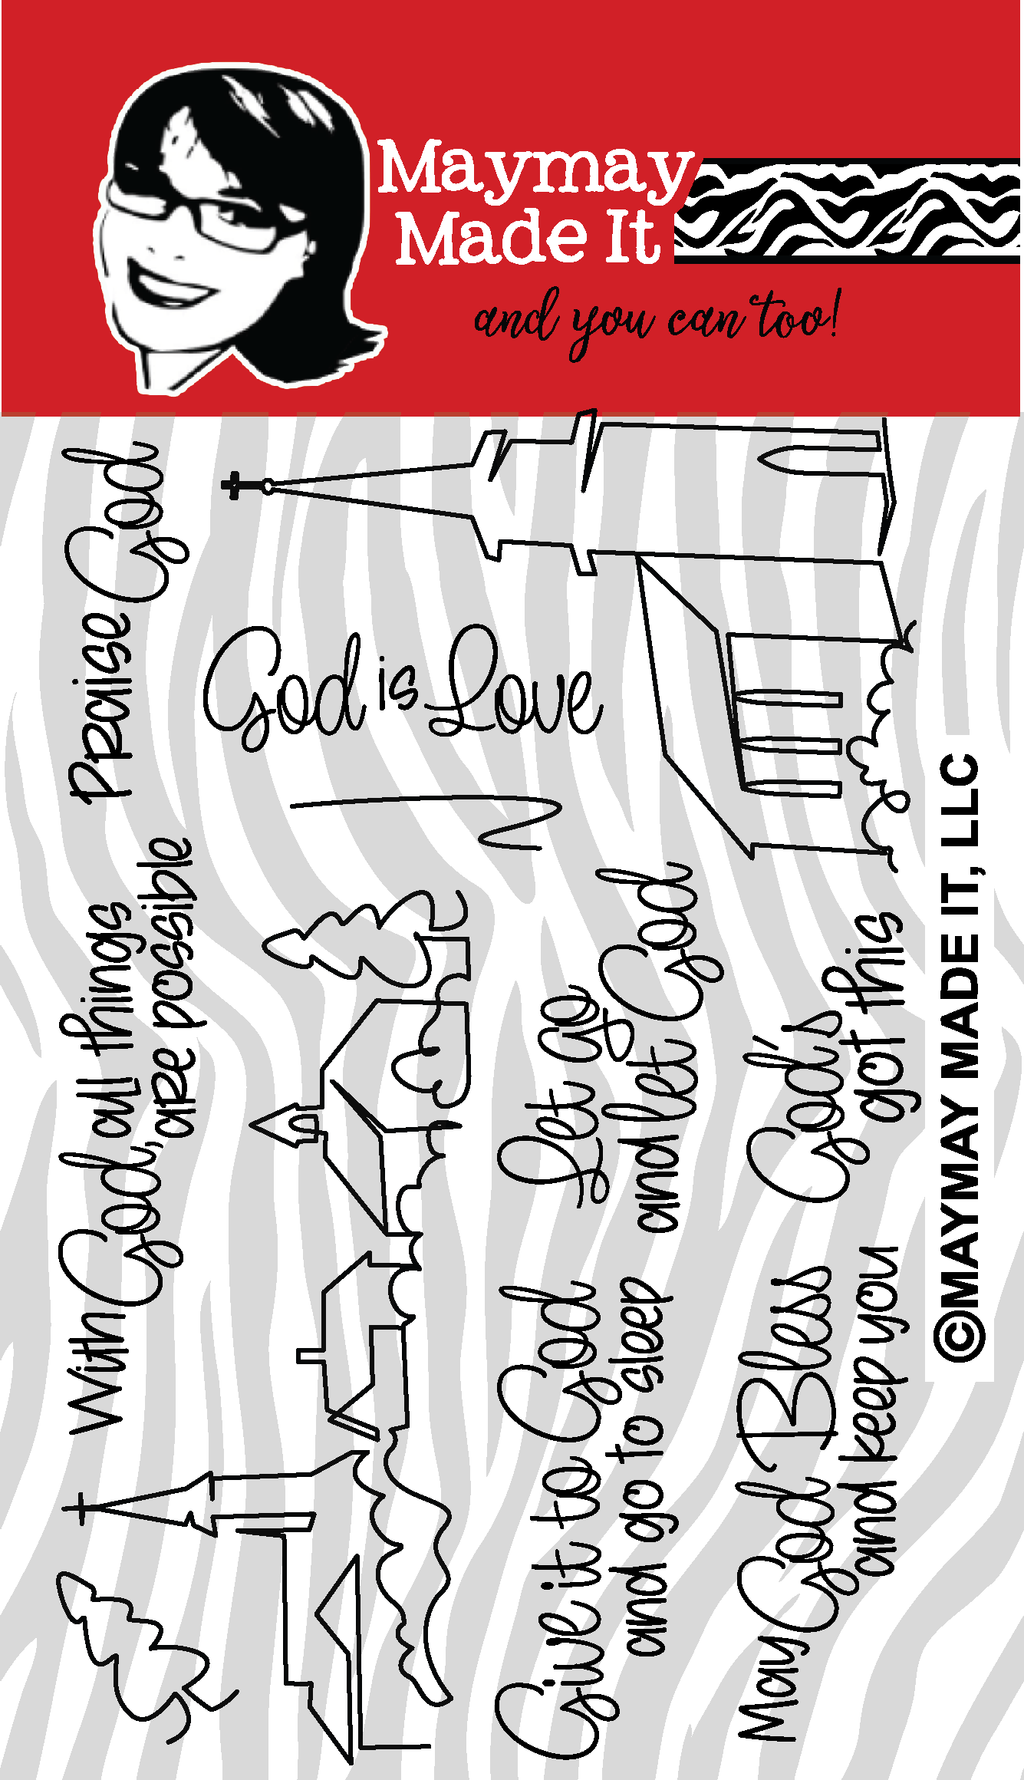 Maymay
Made It
and you can too!
Praise God
God is Love
With God, all things
are possible
Let go
and let God
God's
got this
Give it to God
and go to sleep
May God Bless
and keep you
©MAYMAY MADE IT, LLC